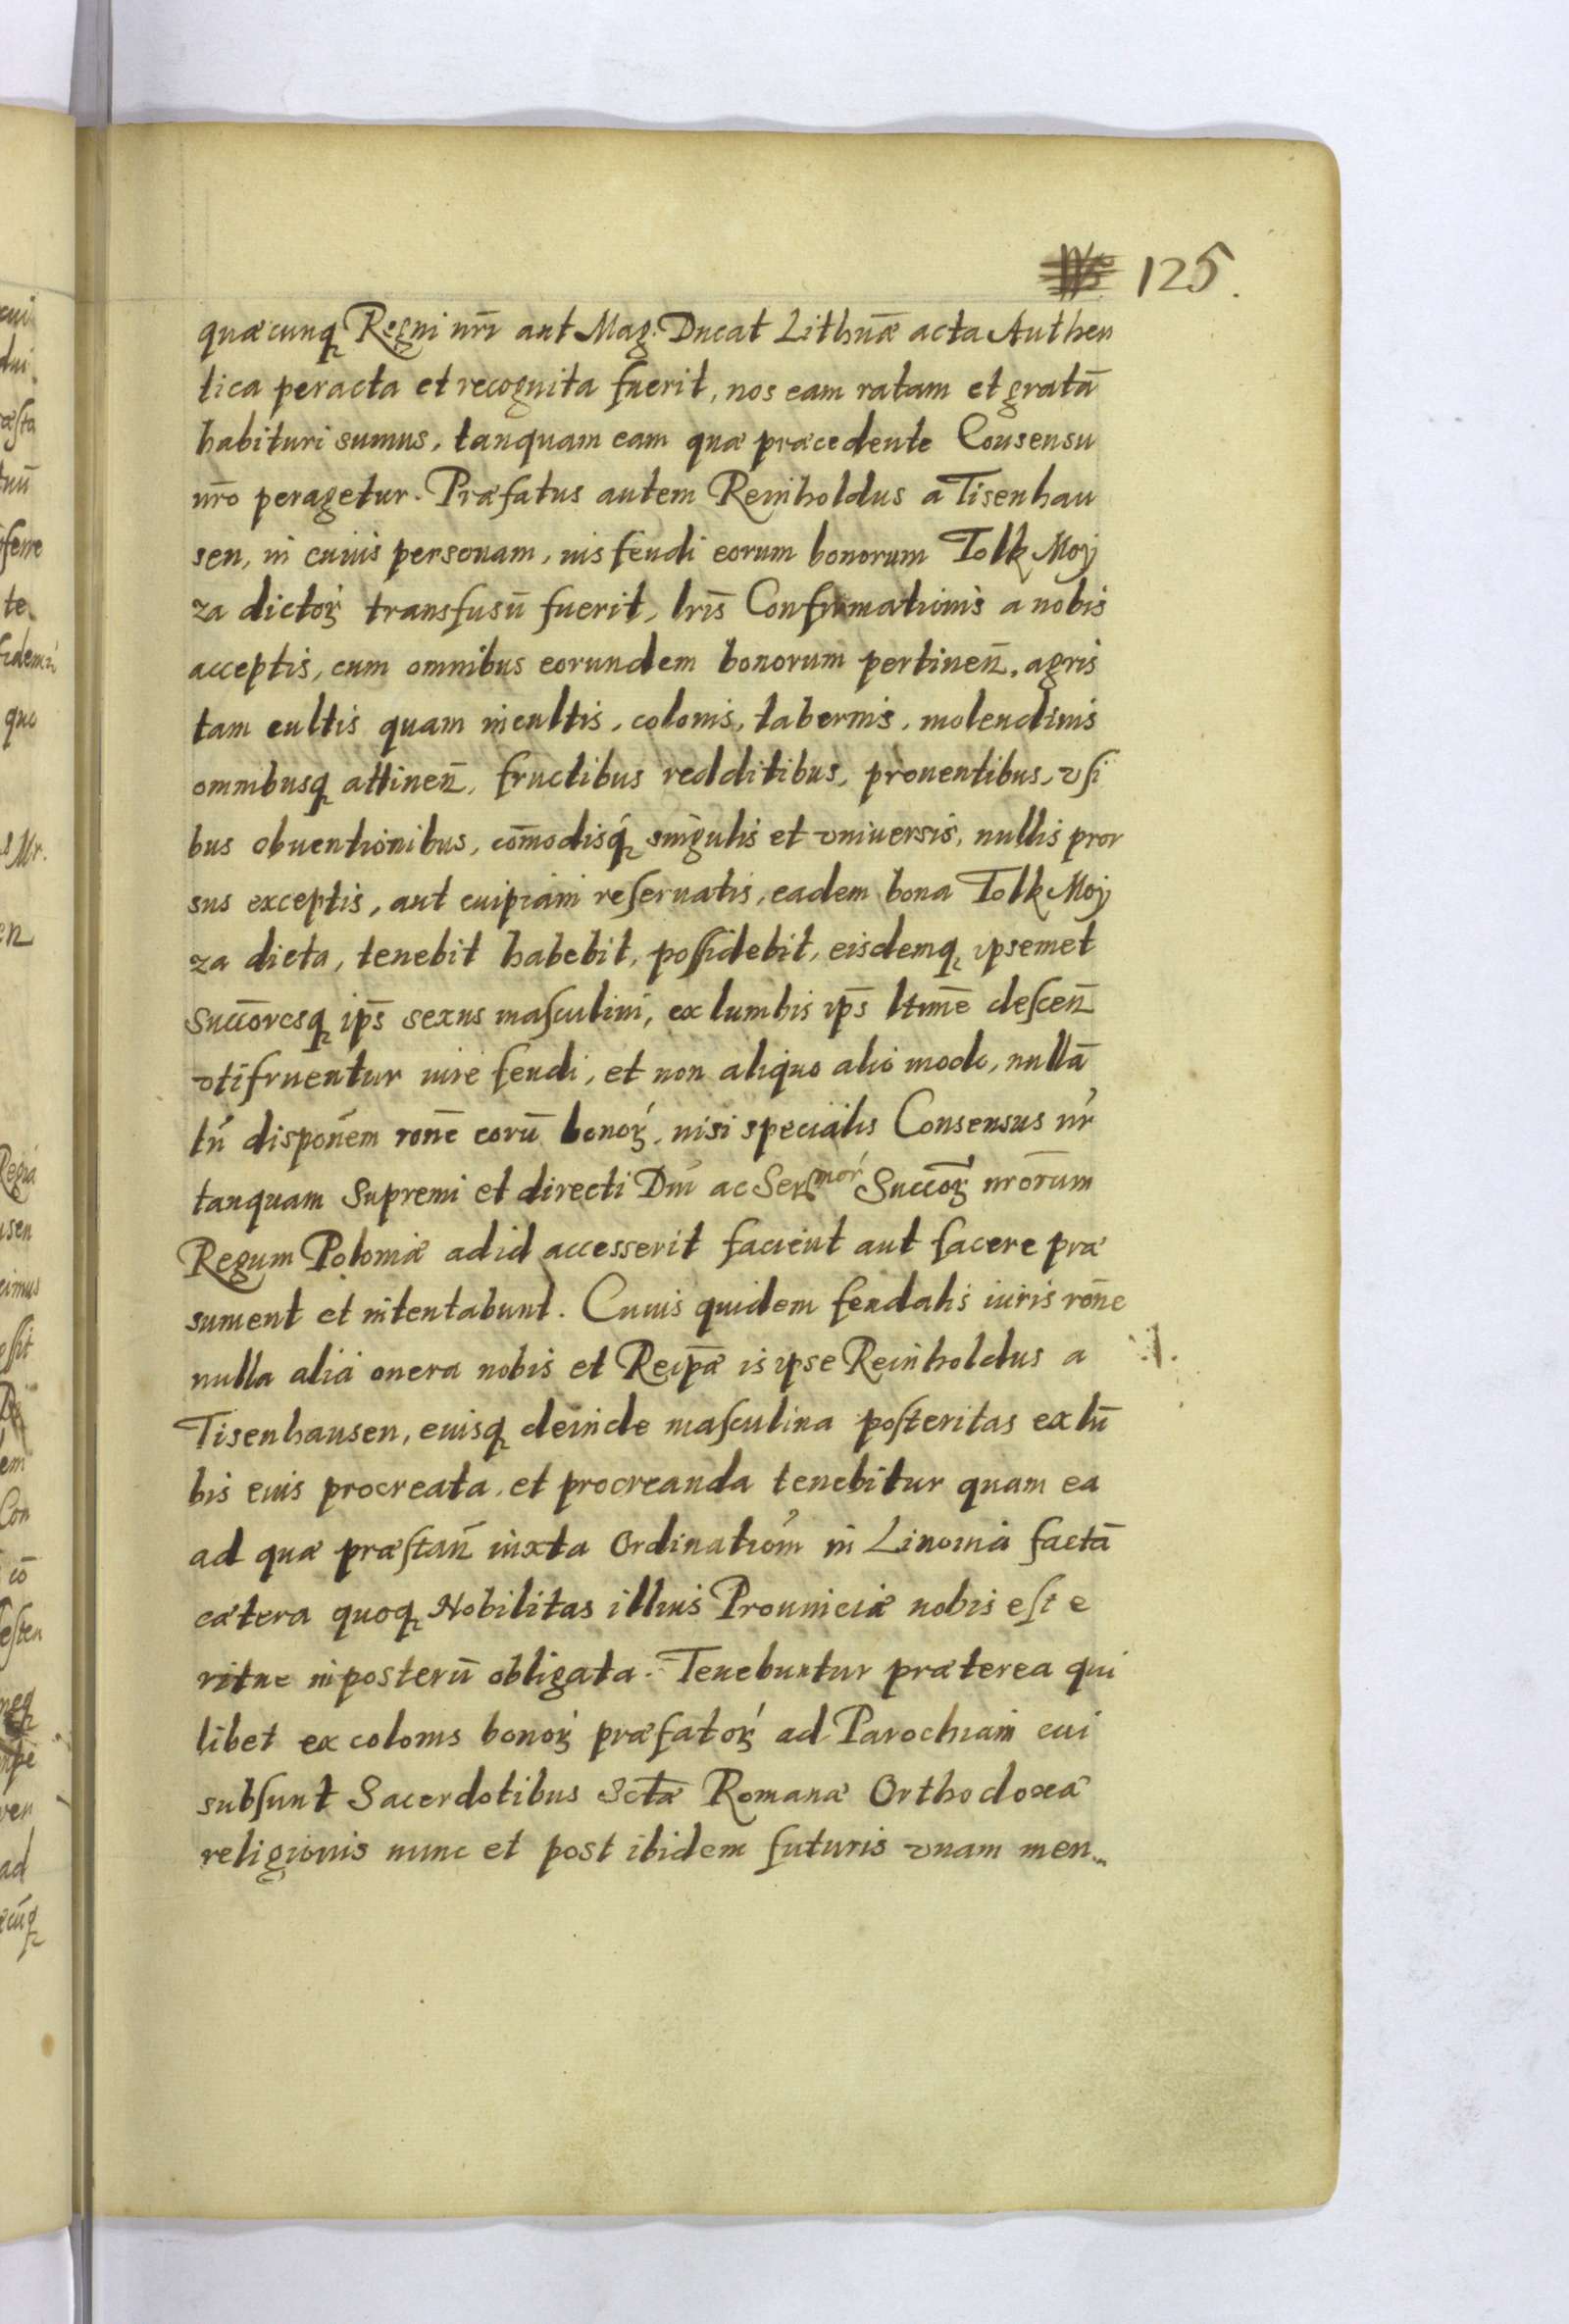 125.
quæcunq Regni nr̄i aut Mag: Ducat Lithuæ acta Authen
tica peracta et recognita fuerit, nos eam ratam et gratā
habituri sumus, tanquam eam quæ præcedente Consensu
nr̄o peragetur. Præfatus autem Reinholdus a Tisenhau
sen, in cuius personam, ius feudi eorum bonorum Tolk Moy
za dictoꝝ transfusū fuerit, lr̄is Confirmationis a nobis
acceptis, cum omnibus eorundem bonorum pertinen̄, agris
tam cultis quam incultis, colonis, tabernis, molendinis
omnibusq attinen̄, fructibus redditibus, prouentibus, vſi
bus obuentionibus, cōmodisq singulis et vniuersis, nullis pror
sus exceptis, aut cuipiam reſeruatis, eadem bona Tolk Moy
za dicta, tenebit habebit, poſſidebit, eisdemq ipsemet
Succoresq ip̄s sexus maſculini, ex lumbis ip̄s ltīme deſcen̄
vtifruentur iure feudi, et non aliquo alio modo, nullā
tn̄ disponēm rone eorū bonoꝝ, nisi specialis Consensus nr̄
tanquam Supremi et directi Dn̄i ac Serᵐᵒʳ Succoꝝ nrōrum
Regum Poloniæ ad id accesserit facient aut facere præ
sument et intentabunt. Cuius quidem feudalis iuris rone
nulla alia onera nobis et Reip̄æ is ipse Reinholdus a
Tisenhausen, eiusq deinde maſculina poſteritas ex lū
bis eius procreata, et procreanda tenebitur quam ea
ad quæ præſtan̄ iuxta Ordinationm in Liuonia factā
cætera quoq Nobilitas illius Prouinciæ nobis eſt e
ritue in posterū obligata. Tenebuntur præterea qui
libet ex colonis bonoꝝ præfatoꝝ ad Parochiam cui
subſunt Sacerdotibus Sctæ Romanæ Orthodoxæ
religionis nunc et post ibidem futuris vnam men